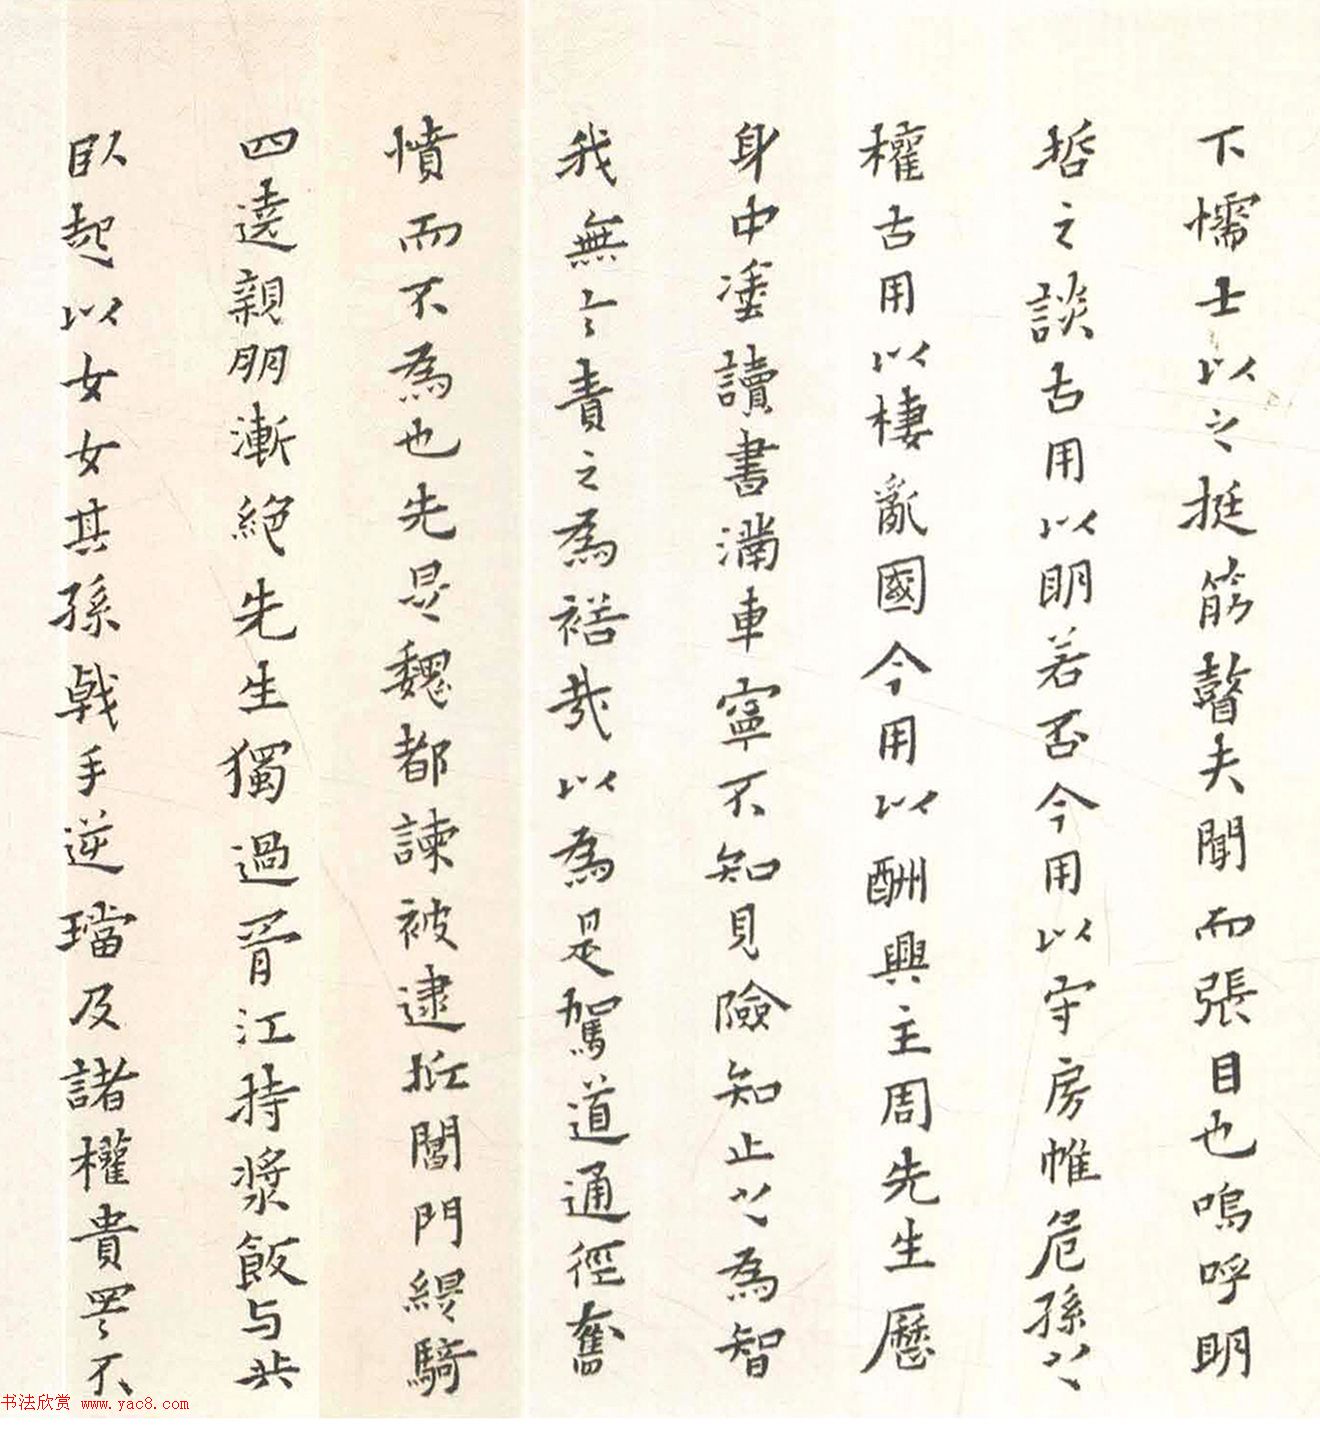 下懦士以之挺筋瞽夫聞而張目也嗚呼明
哲之談古用以明若否今用以守房帷危孫以
權古用以棲亂國今用以酬興主周先生歷
身中塗讀書滿車寧不知見險知止以為智
我無言責之為裕哉以為是駕道通徑奮
憤而不為也先是魏都諫被逮抵閶門緹騎
四遶親朋漸絕先生獨過胥江持漿飯与共
臥起以女女其孫戟手逆璫及諸權貴罵不
书法欣赏 www.yac8.com